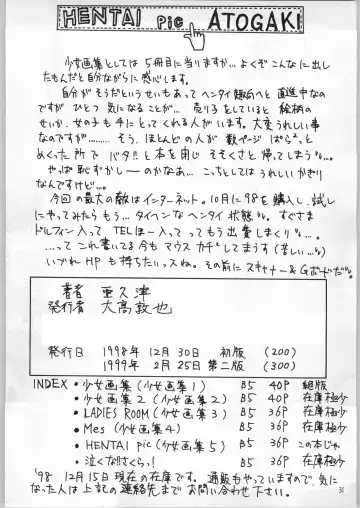 HENTAI pic ATOGAKI
少女画集としては 5冊目に当りますか…よくぞこんなに出し
たもんだと自分ながらに感心します。
自分がそうだというせいもあってヘンタイ趣向へと直進中なの
ですが ひとつ気になることが… 売り子をしていると 絵柄の
せいか、女の子も手にとってくれる人がいます。大変うれしい事
なのですが……… そう、ほとんどの人が 数ページ ぱらぱらと
めくった所で バタ!! と本を閉じ そそくさと 帰ってしまう…。
やっぱ恥ずかしーのかなあ… こっちとしてはうれしいかぎり
なんですけど…。
今回の最大の敵はインターネット。10月に98を購入し、試し
にやってみたらもう… タイヘンなヘンタイ状態。すぐさま
ドルフィン入って TELほー入って ってもう出費しまくり…。
…って これ書いてる今も マウス カチ してまます(苦しい…)
いづれHPも持ちたいっスね。その前に スキャナー&Gボードだ。
著者 亜久津
発行者 大高敦也
発行日 1998年 12月 30日 初版 (200)
1999年 2月 25日 第二版 (300)
INDEX ・少女画集(少女画集1) B5 40P 絶版
・少女画集2(少女画集2) B5 40P 在庫極少
・LADIES ROOM(少女画集3) B5 36P 在庫極少
・Mes(少女画集4) B5 36P 在庫極少
・HENTAI pic(少女画集5) B5 36P この本じゃ
・泣くな!さくらっ! B5 36P 在庫極少
'98 12月15日現在の在庫です。通販もやっていますので、気に
なった人は上記の連絡先までお問い合わせ下さい。